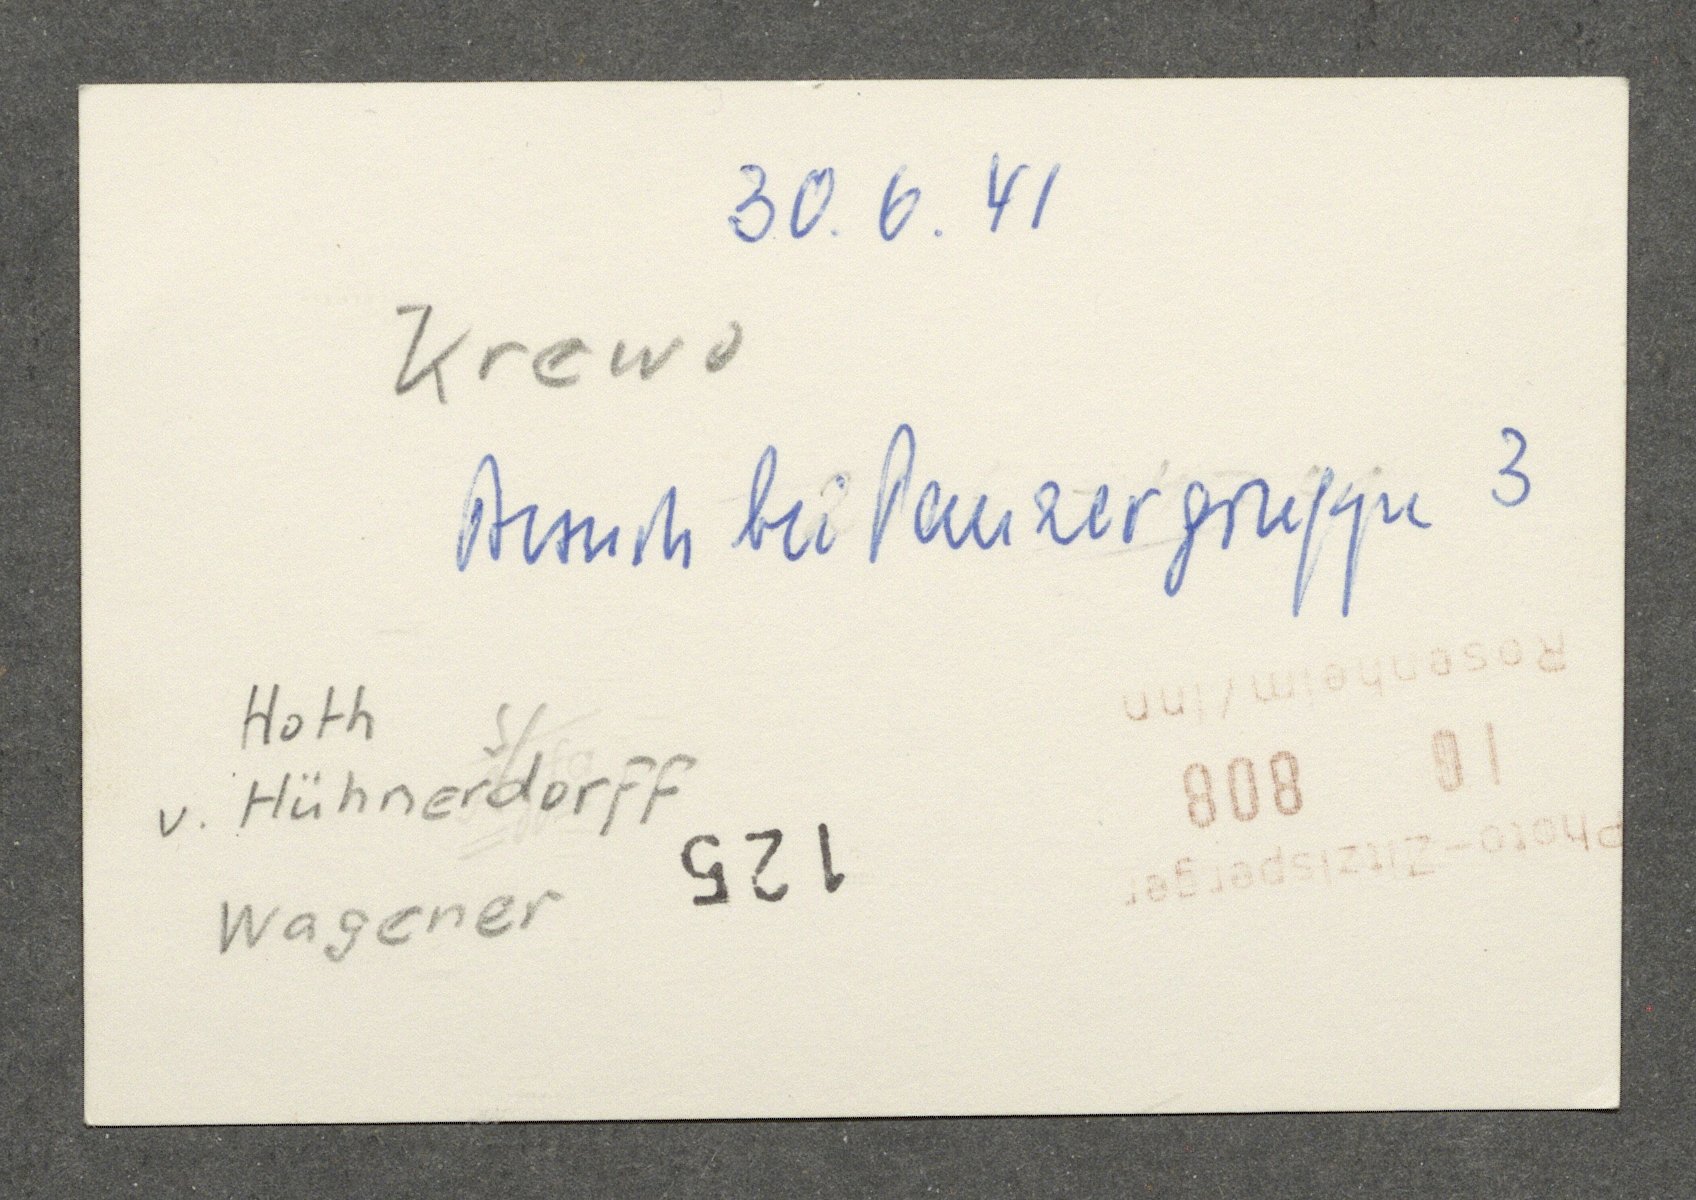 30. 6. 41
Krewo
Besuch bei Panzergruppe 3
Hoth
v. Hühnerdorff
Wagener
125
Photo-Zitzlsperger
808
Rosenheim/Inn